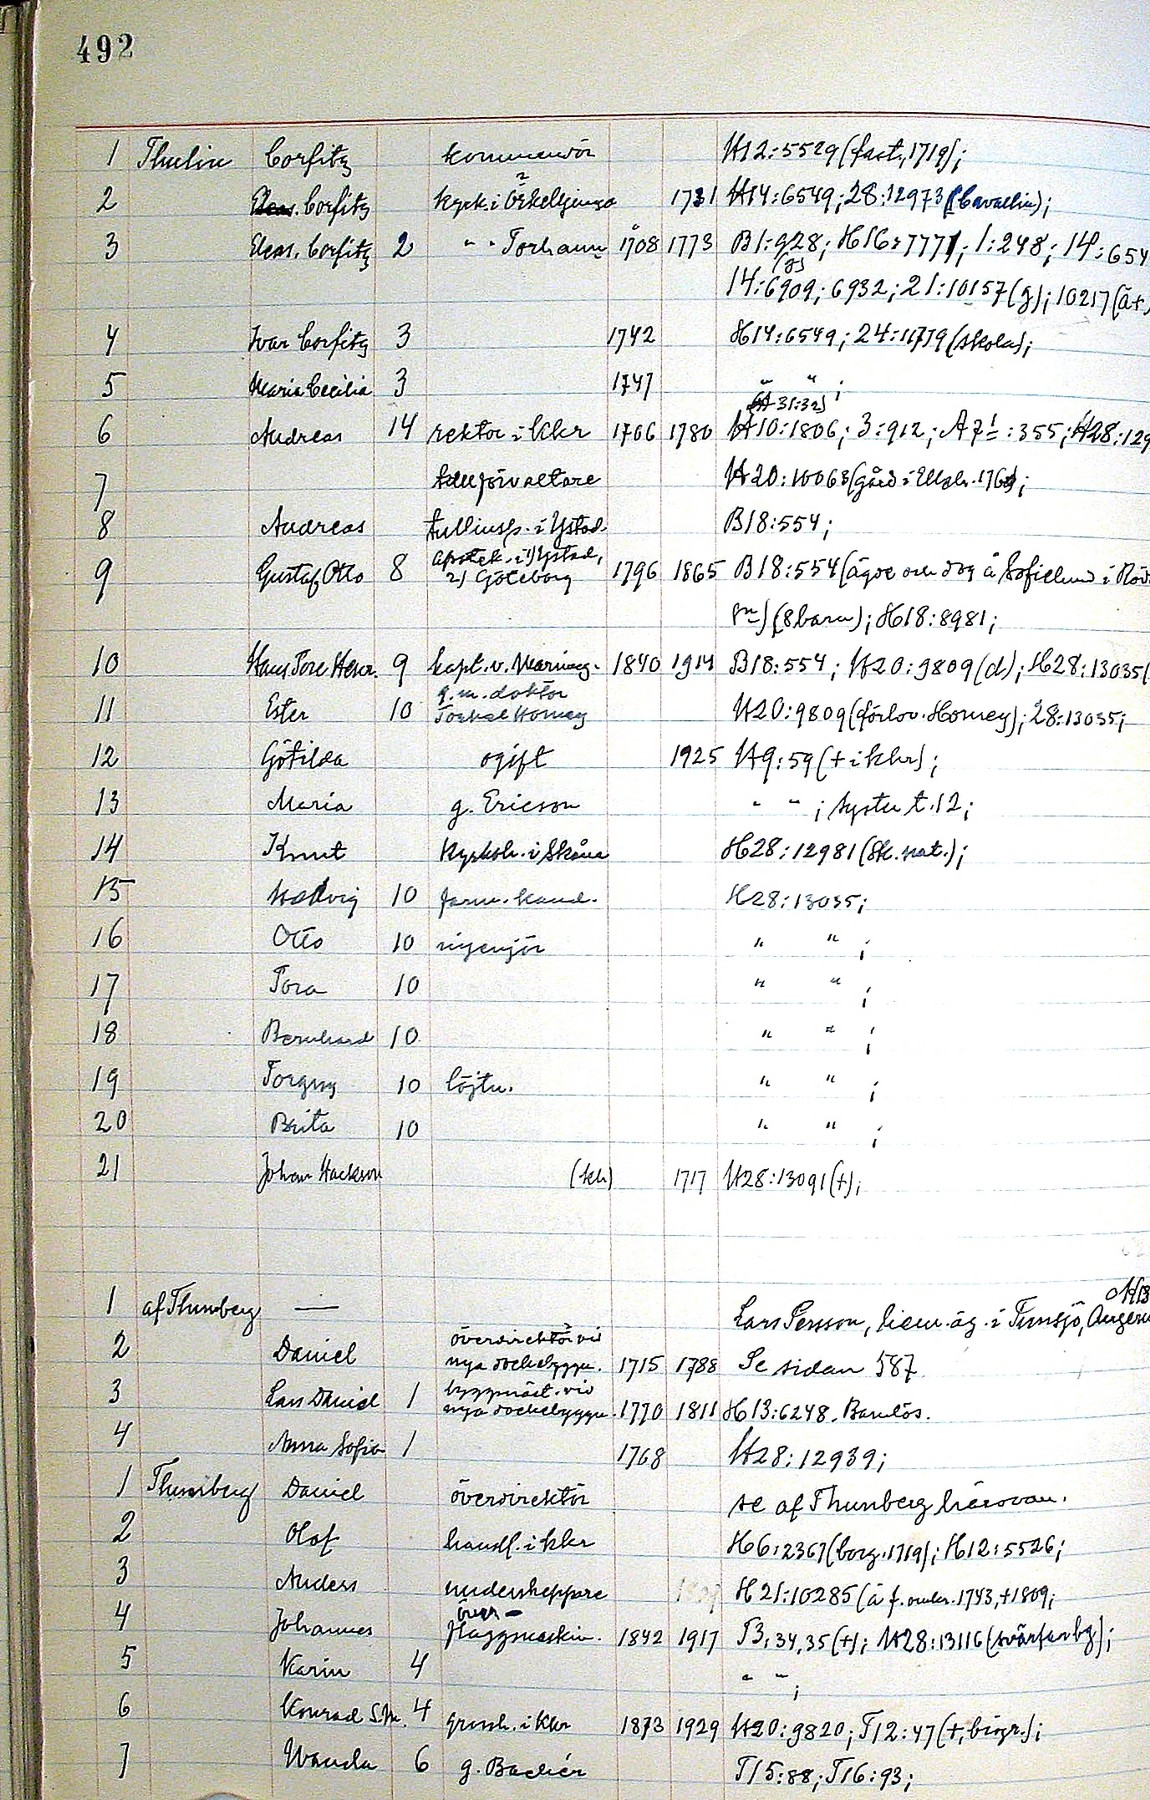 492
1 Thulin Corfitz kommendör H12:5529 (fast., 1719);
2 Corfitz kyrk. i Örkelljunga 1731 H14:6549; 28:12973 (Cavallin);
3 Elias. Corfitz 2 " " Torhamn 1708 1773 B1:928; H16:7771; 1:248; 14:654
(g)
14:6909; 6932; 21:10157 (g); 10217 (ä+,
4 Ivar Corfitz 3 1742 H14:6549; 24:11719 (skola);
5 Maria Cecilia 3 1747 " " ;
31:32)
6 Andreas 14 rektor i kkr 1706 1780 H10:1806; 3:912; A 7¹:355; H28:129
7 tullförvaltare H20:10063 (gård i
8 Andreas tulliusp. i Ystad. B18:554;
apotek. i 1) Ystad,
9 Gustaf Otto 8 2) Göteborg 1796 1865 B18:554 (ägde och dog å Sofielund i Röd
(8 barn); H18:8981;
10 Hans Tore Henr. 9 kapt. v. Maring. 1840 1914 B18:554; H20:9809 (d); H28:13035 (
g. m. doktor
11 Ester 10 Homey H20:9809 (förlov. Homey); 28:13035;
12 Götilda ogift 1925 H9:59 (+ i kkr);
13 Maria g. Ericson " " ; syster t. 12;
14 Knut kyrkoh. i Skåne H28:12981 (Sk. nat.);
15 Hedvig 10 farm. kand. H28:13035;
16 Otto 10 ingenjör " " ;
17 Tora 10 " " ;
18 Bernhard 10 " " ;
19 Torgny 10 löjtn. " " ;
20 Brita 10 " " ;
21 Johan Hackson (kh) 1717 H28:13091 (+);
H13
1 af Thunberg — Lars Persson, hem. äg. i Tunsjö, Ångerm
överdirektör vid
2 Daniel nya dockebyggn. 1715 1788 Se sidan 587
byggmäst. vid
3 Lars Daniel 1 nya dockebyggn. 1770 1811 H13:6248. Barnlös.
4 Anna Sofia 1 1768 H28:12939;
1 Thunberg Daniel överdirektör se af Thunberg härovan.
2 Olof handl. i kkr H6:2367 (borg. 1719); H12:5526;
3 Anders underskeppare H21:10285 (ä f. omkr. 1743, +1809;
över-
4 Johannes flaggmaskin. 1842 1917 T3:34,35 (+); H28:13116 (svärfar bg);
5 Karin 4 " " ;
6 Konrad S.M. 4 grossh. i kkr 1873 1929 H20:9820; T12:47 (+, biogr.);
7 Wanda 6 g. Backér T15:88; T16:93;